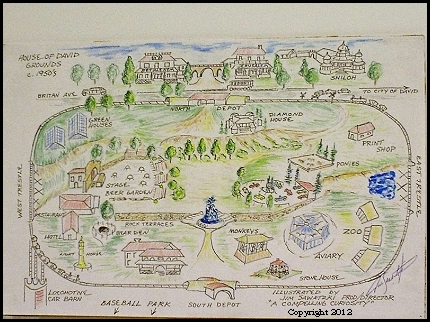 HOUSE OF DAVID
GROUNDS
c. 1930's
SHILOH
BRITAN AVE.
TO CITY OF DAVID
NORTH DEPOT
GREEN
HOUSES
DIAMOND
HOUSE
PRINT
SHOP
STAGE
BEER GARDEN
PONIES
WEST TRESTLE
EAST TRESTLE
RESTAURANT
RICH TERRACES
HOTEL
GARDEN
MONKEYS
ZOO
AVIARY
HOUSE
STONE HOUSE
LOCOMOTIVE
CAR BARN
BASEBALL PARK
SOUTH DEPOT
ILLUSTRATED BY
JIM SAWATZKI PROD/DIRECTOR
"A COMPELLING CURIOSITY"
Copyright 2012